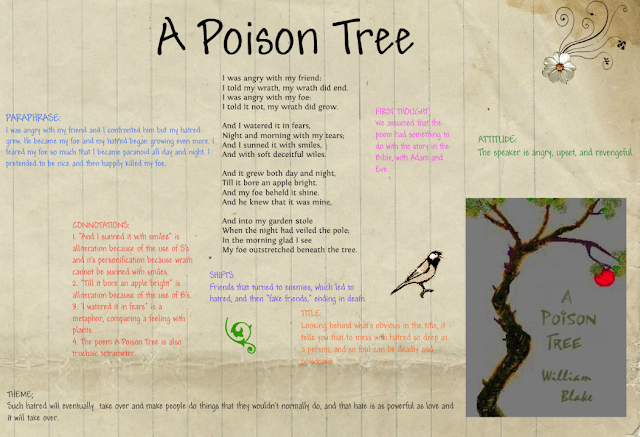 A Poison Tree
I was angry with my friend:
I told my wrath, my wrath did end.
I was angry with my foe:
I told it not, my wrath did grow.
And I watered it in fears,
Night and morning with my tears;
And I sunned it with smiles,
And with soft deceitful wiles.
And it grew both day and night,
Till it bore an apple bright.
And my foe beheld it shine.
And he knew that it was mine,
And into my garden stole
When the night had veiled the pole;
In the morning glad I see
My foe outstretched beneath the tree.
PARAPHRASE:
I was angry with my friend and I confronted him but my hatred
grew. He became my foe and my hatred began growing even more. I
feared my foe so much that I became paranoid all day and night. I
pretended to be nice and then happily killed my foe.
FIRST THOUGHT:
We assumed that the
poem had something to
do with the story in the
Bible, with Adam and
Eve.
ATTITUDE:
The speaker is angry, upset, and revengeful.
CONNOTATIONS:
1. "And I sunned it with smiles" is
alliteration because of the use of S's
and it's personification because wrath
cannot be sunned with smiles.
2. "Till it bore an apple bright" is
alliteration because of the use of B's.
3. "I watered it in fears" is a
metaphor, comparing a feeling with
plants.
4. The poem A Poison Tree is also
trochaic tetrameter.
SHIFTS:
Friends that turned to enemies, which led to
hatred, and then "fake friends," ending in death.
TITLE:
Looking behind what's obvious in the title, it
tells you that to mess with hatred so deep in
a person, and so foul can be deadly and
poisonous.
A
POISON
TREE
William
Blake
THEME:
Such hatred will eventually take over and make people do things that they wouldn't normally do, and that hate is as powerful as love and
it will take over.